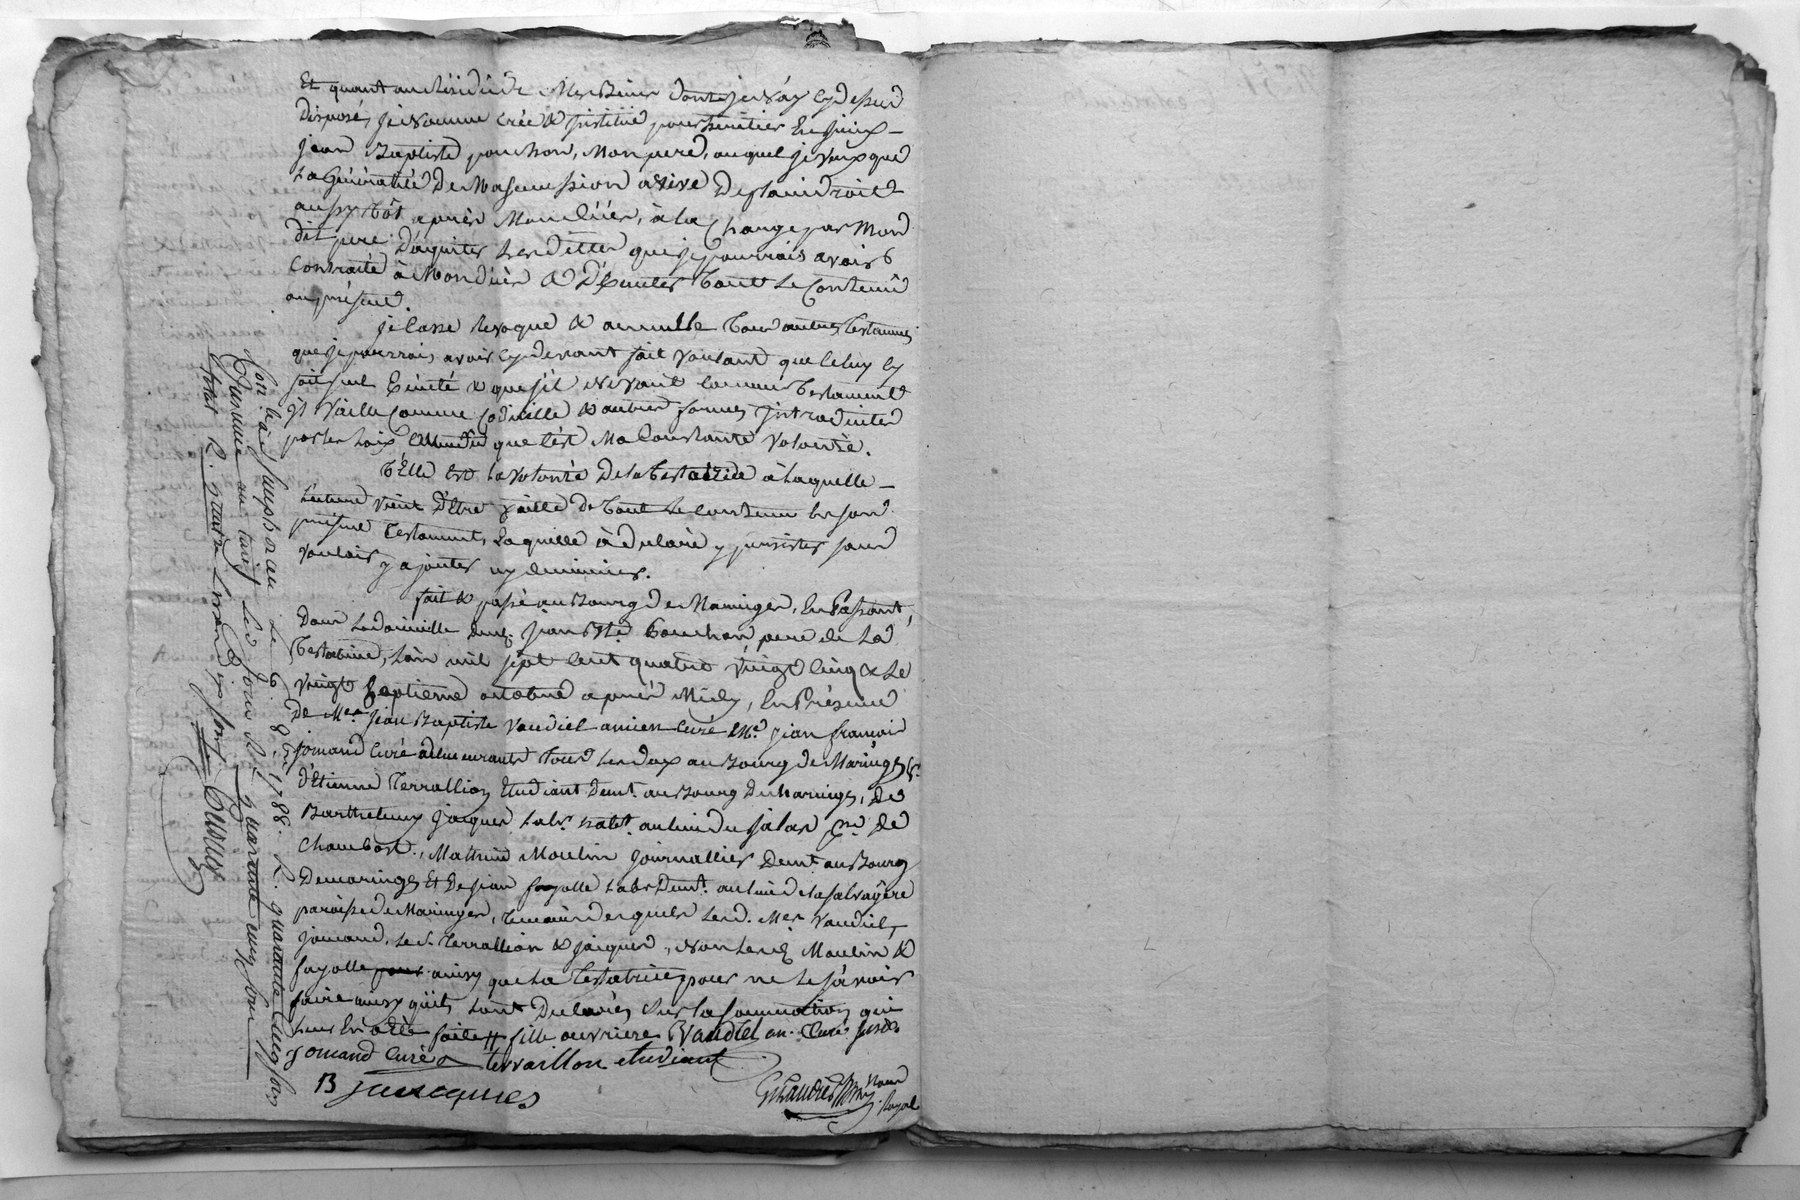 Et quant au Résidû de Mes Biens dont je n'ay cy dessus
disposé, je nomme créé & Institüe pour heritier
jean Baptiste pouchon, Mon pere, auquel je veux que
La Généralité de Ma sucession arive De plain droit
aussy tôt après Mon déces, à la Charge par Mon
dit pere D'aquiter Les dettes que je pourrois avoir
Contracté à Mon décès & D'éxecuter Tout Le Contenû
au présent.
je Casse Revoque & annulle Tous autres Testaments
que je pourrois avoir cy devant fait voulant que Celuy cy
soit seul éxécuté & que s'il ne vaut comme Testament
il vaille Comme Codicille & autres formes Introduites
par les Loix attendû que C'est Ma Constante volonté.
Telle est La volonté De la Testatrice à Laquelle
Lecture vient D'être faitte De Tout Le Contenu en son
présent Testament, Laquelle à declaré y persister sans
vouloir y ajouter ny diminuer.
fait & passé au Bourg De Maringes, En Passant,
Dans Le domicille dud. jean Bte. Pouchon pere de La
Testatrice, L'an mil sept cent quatre vingt cinq & Le
vingt septieme octobre après Midy, En Présence
De Mes. jean Baptiste Vaudiel ancien Curé Me. jean francois
jomand Curé demeurants Tous Les deux au Bourg de Maringes,
d'Etienne Terrallion Etudiant Demt. au Bourg De Maringes, De
Barthelemy jacques Labr. habt. au lieu du jalas pse. de
Chambost, Mathieu Moulin journallier Demt. au Bourg
De maringes Et De jean fayolle Labr. Demt. au lieu de la salvagere
paroisse de Maringes, Temoins desquels Lesd. Mes. Vaudiel,
jomand, Le s. Terrallion & jacques, non Lesd. Moulin &
fayolle ainsy que La Testatrice pour ne Le sçavoir
faire ainsy qu'ils L'ont Declaré, sur la sommation qui
Leur En a été faite // fille ouvriere Vaudiel an. Curé
jomand Curé terraillon etudiant
B jacques
Giraudier Nore Royal
Con. lé à St simphorien Le 6 8bre 1788. R. quarante cinq sols